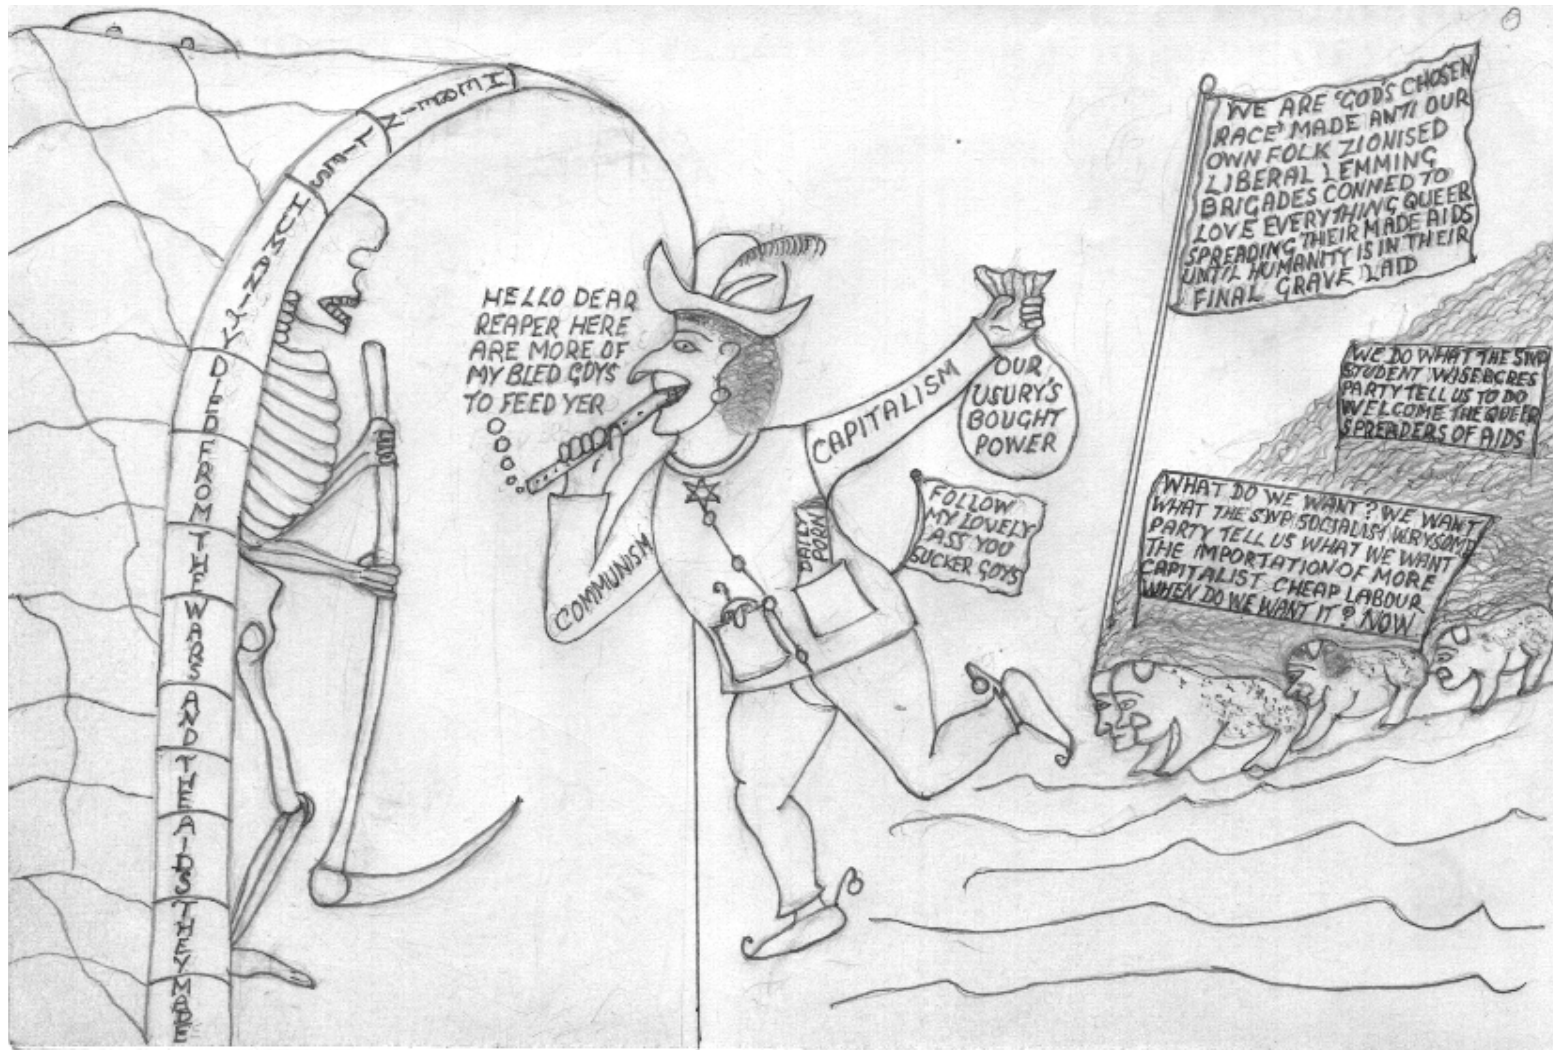 HEREIN
LIES
HUMANITY
DIED
FROM
THE
WARS
AND
THE
AIDS
THEY
MADE
HELLO DEAR
REAPER HERE
ARE MORE OF
MY BLED GOYS
TO FEED YER
COMMUNISM
CAPITALISM
DAILY
PORN
OUR
USURY'S
BOUGHT
POWER
FOLLOW
MY LOVELY
ASS YOU
SUCKER GOYS
WE ARE 'GOD'S CHOSEN
RACE' MADE ANTI OUR
OWN FOLK ZIONISED
LIBERAL LEMMING
BRIGADES CONNED TO
LOVE EVERYTHING QUEER
SPREADING THEIR MADE AIDS
UNTIL HUMANITY IS IN THEIR
FINAL GRAVE LAID
WE DO WHAT THE SWP
STUDENT WISEACRES
PARTY TELL US TO DO
WELCOME THE QUEER
SPREADERS OF AIDS
WHAT DO WE WANT? WE WANT
WHAT THE SWP SOCIALISM
PARTY TELL US WHAT WE WANT
THE IMPORTATION OF MORE
CAPITALIST CHEAP LABOUR
WHEN DO WE WANT IT? NOW